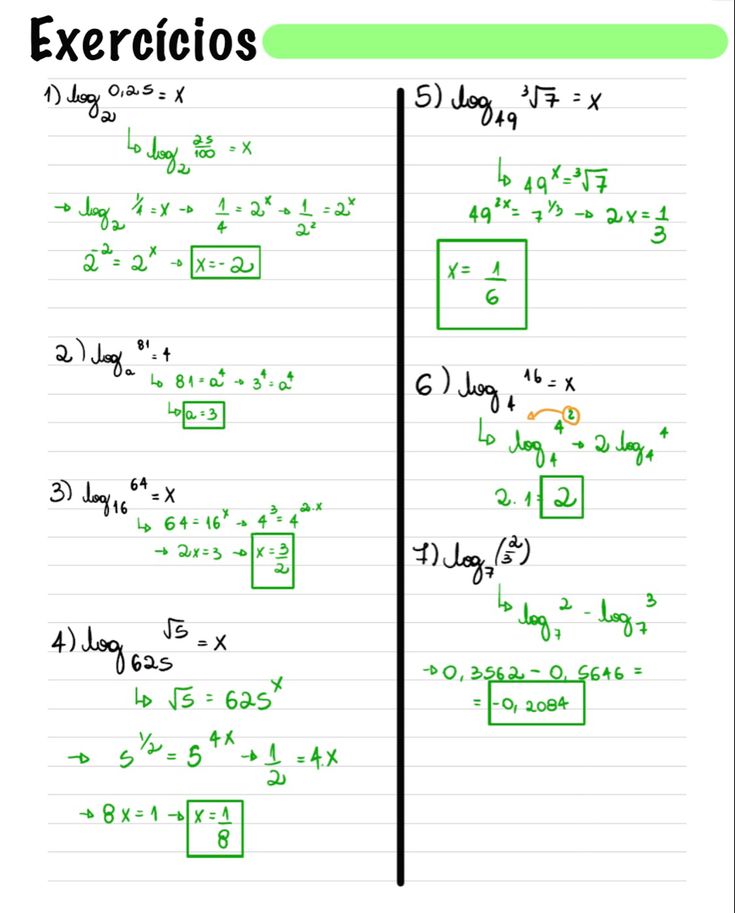 Exercícios
1) log₂ 0,25 = x
↳ log₂ 25/100 = x
→ log₂ 1/4 = x → 1/4 = 2ˣ → 1/2² = 2ˣ
2⁻² = 2ˣ → x = -2
2) logₐ 81 = 4
↳ 81 = a⁴ → 3⁴ = a⁴
↳ a = 3
3) log₁₆ 64 = x
↳ 64 = 16ˣ → 4³ = 4^(2·x)
→ 2x = 3 → x = 3/2
4) log₆₂₅ √5 = x
↳ √5 = 625ˣ
→ 5^(1/2) = 5^(4x) → 1/2 = 4.x
→ 8x = 1 → x = 1/8
5) log₄₉ ³√7 = x
↳ 49ˣ = ³√7
49^(2x) = 7^(1/3) → 2x = 1/3
x = 1/6
6) log₄ 16 = x
↳ log₄ 4² → 2 log₄ 4
2.1 = 2
7) log₇ (2/3)
↳ log₇ 2 - log₇ 3
→ 0,3562 - 0,5646 =
= -0,2084